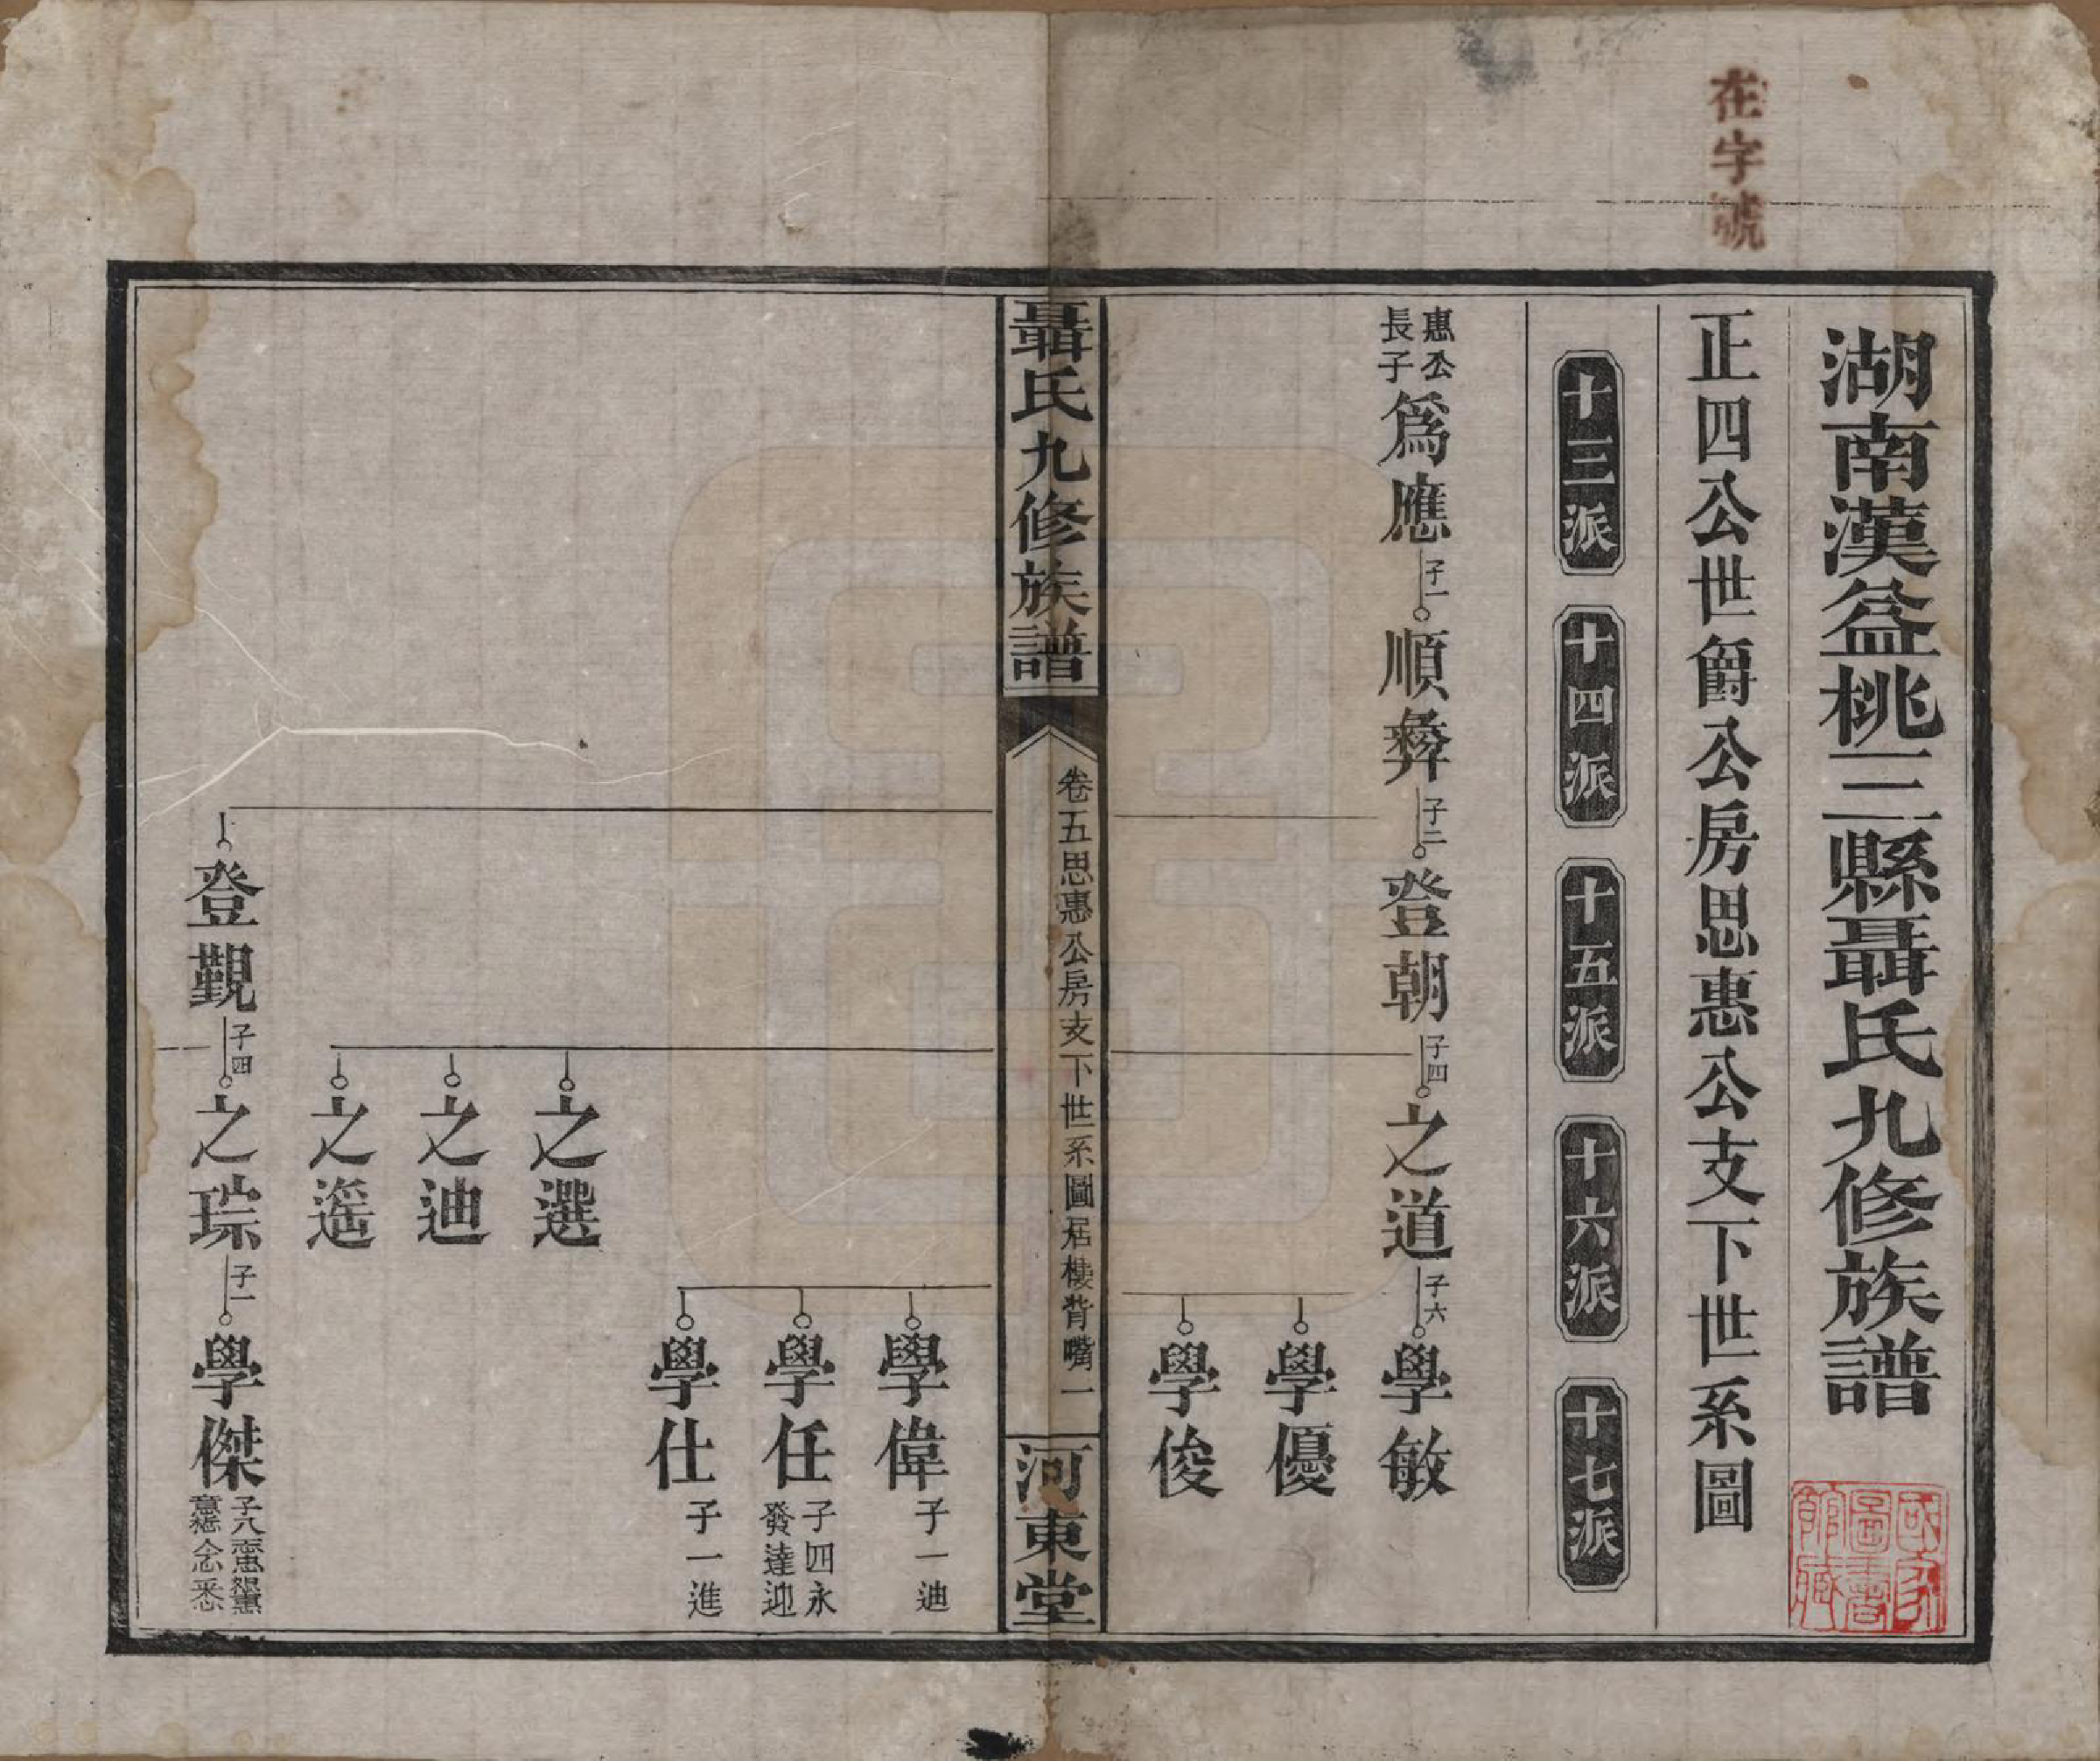 在字號
湖南漢益桃三縣聶氏九修族譜
國家圖書館藏
正四公世爵公房思惠公支下世系圖
十三派
十四派
十五派
十六派
十七派
惠公長子
爲應
子一
順彝
子二
登朝
子四
之道
子六
學敏
學優
學俊
聶氏九修族譜
卷五思惠公房支下世系圖居樓背嘴一
河東堂
學偉
子一迪
學任
子四永發達迎
學仕
子一進
之選
之迪
之遥
登觀
子四
之琮
子一
學傑
子八